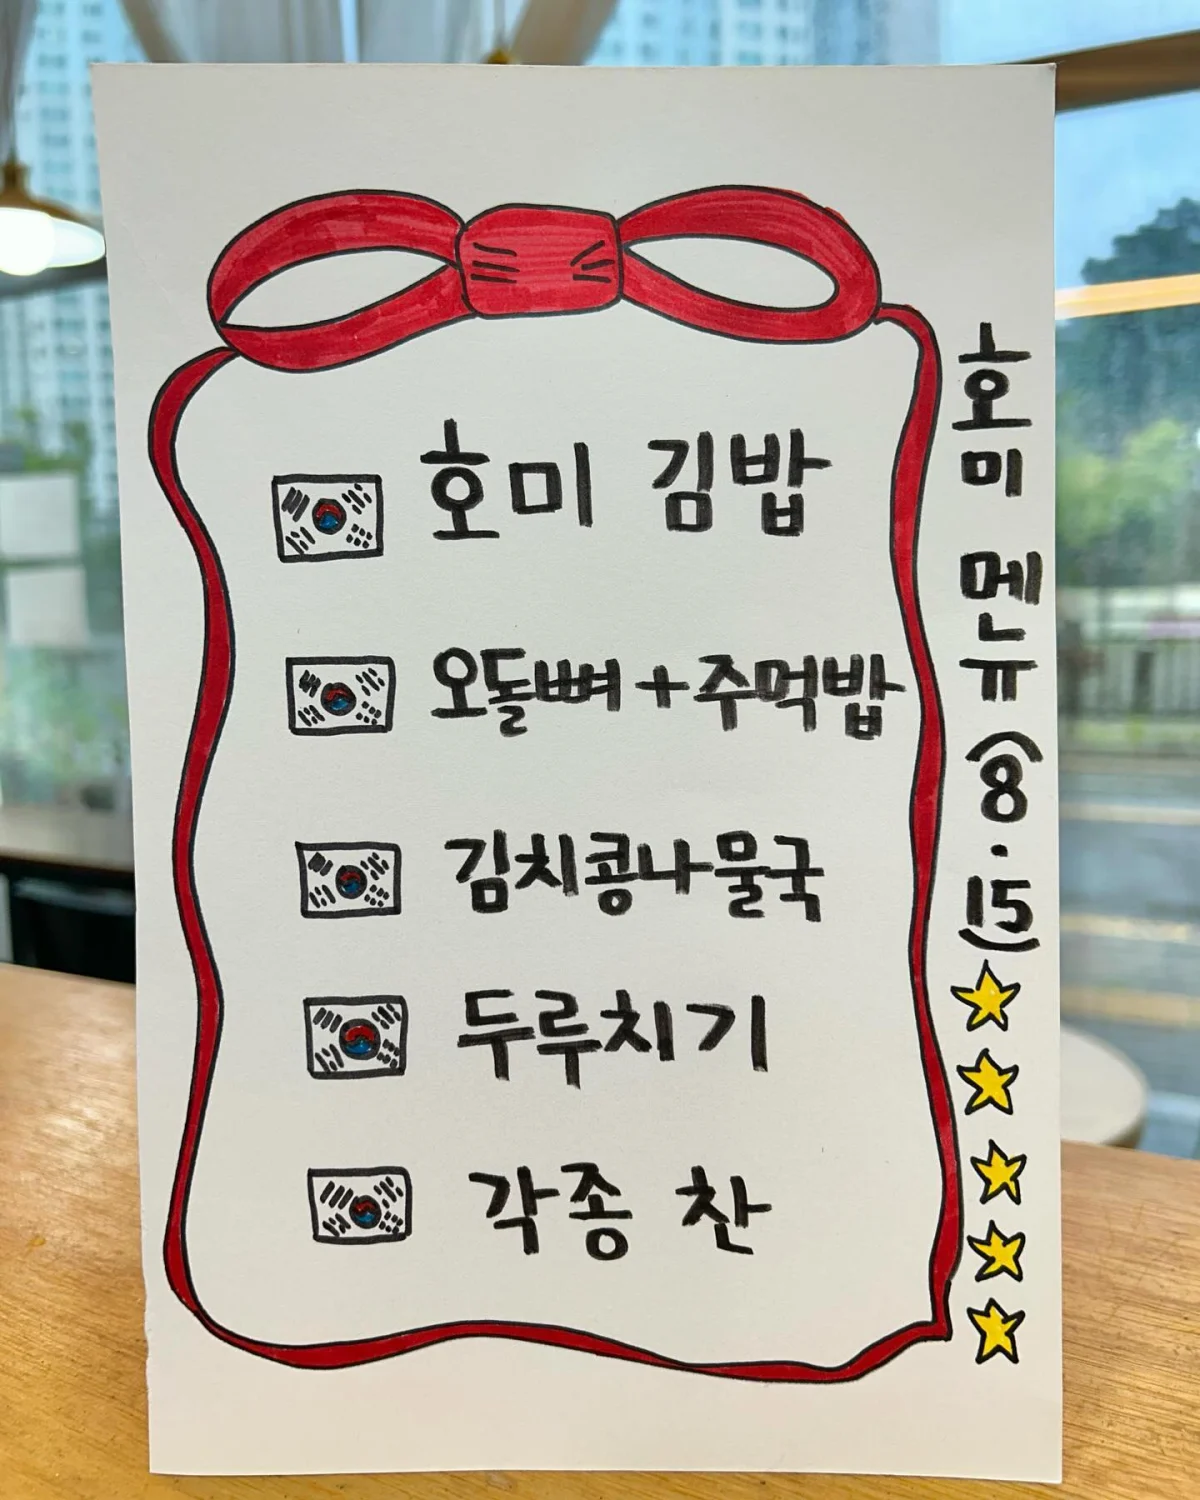 호미 김밥
오돌뼈+주먹밥
김치콩나물국
두루치기
각종 찬
호미 메뉴 (8.15)